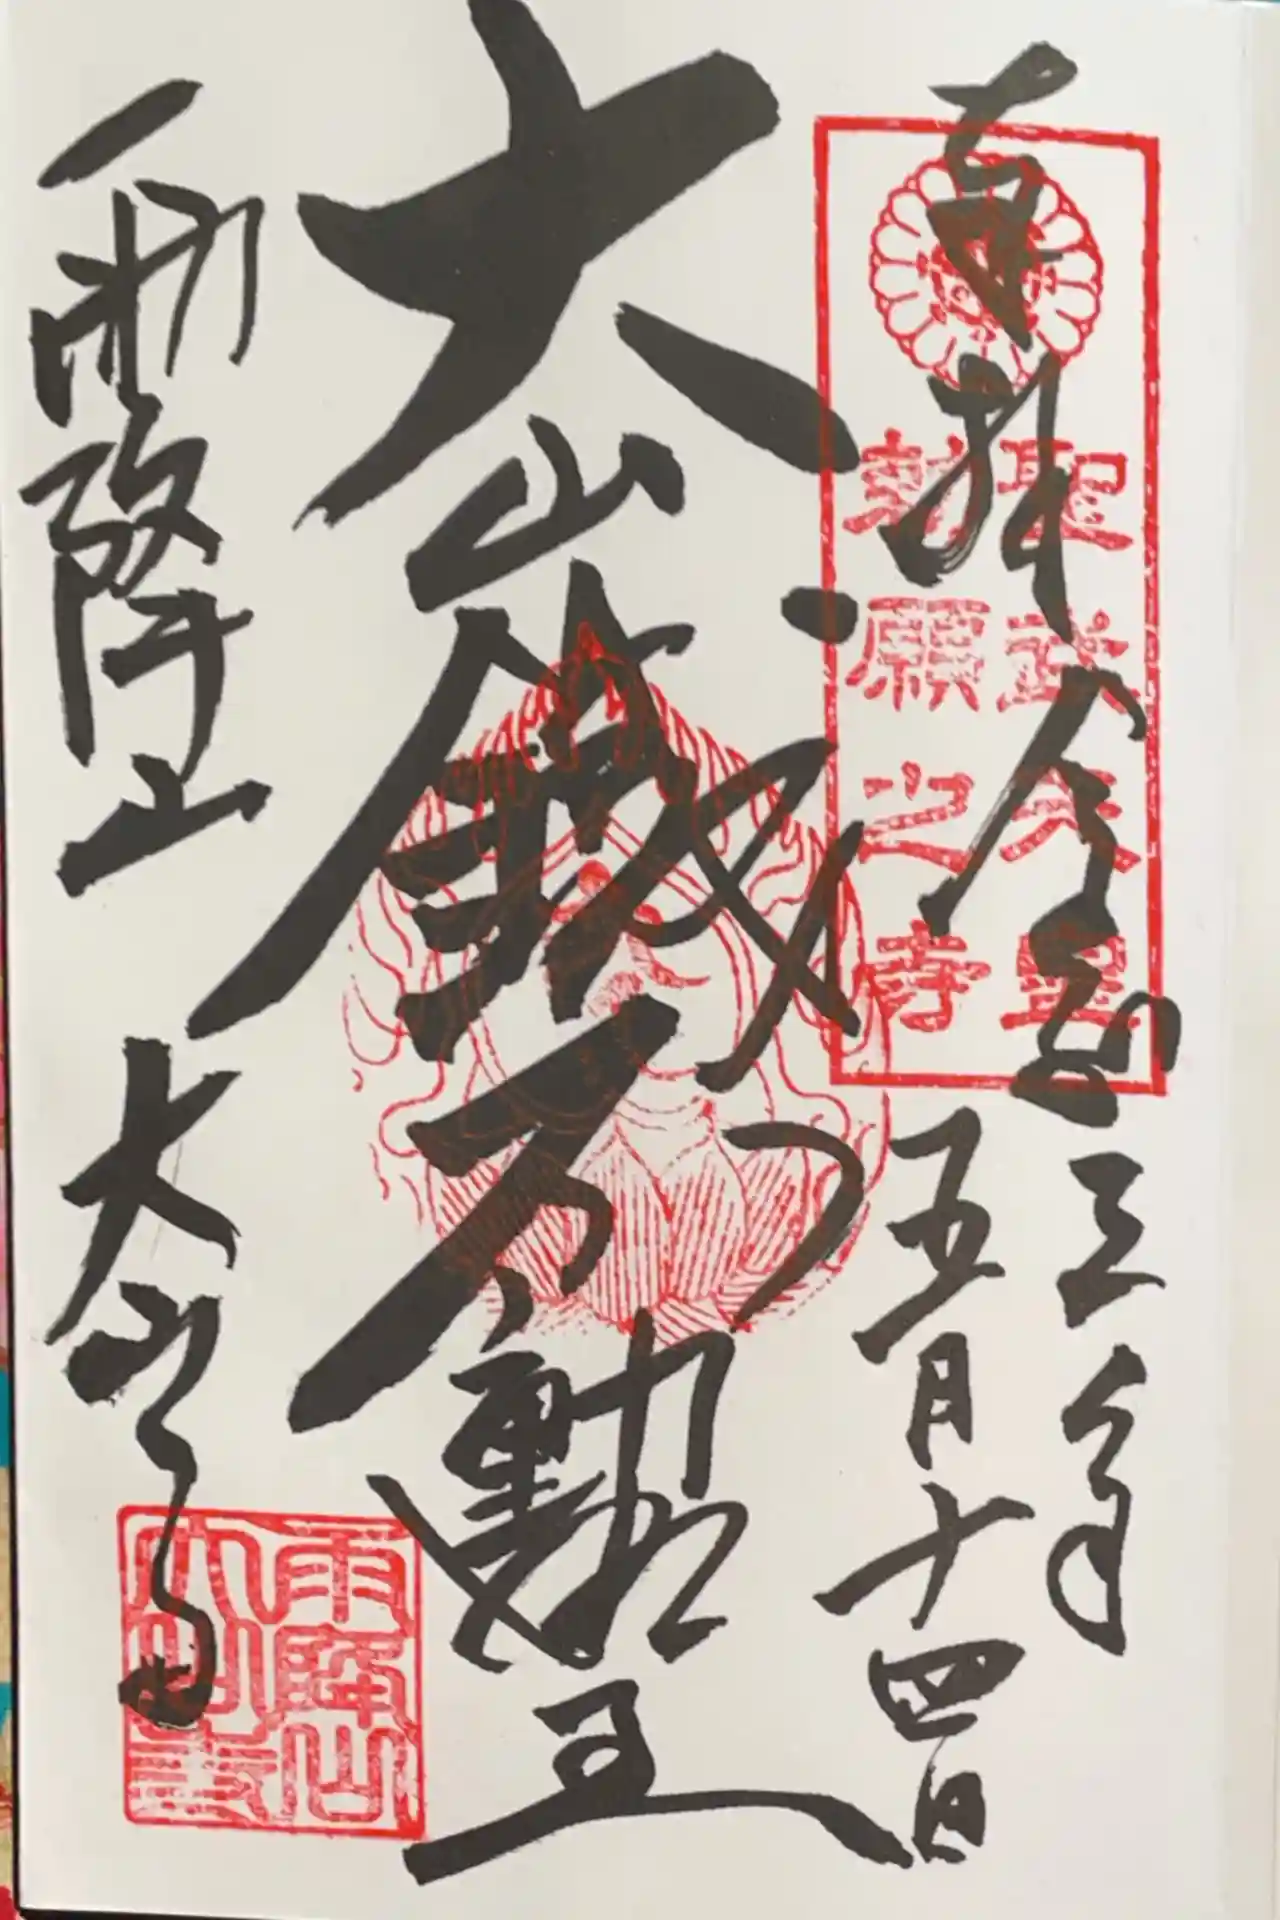 奉拝
聖武天皇
勅願之寺
令和三年
五月十四日
大山鐵不動王
雨降山
大山寺
雨降山
大山寺